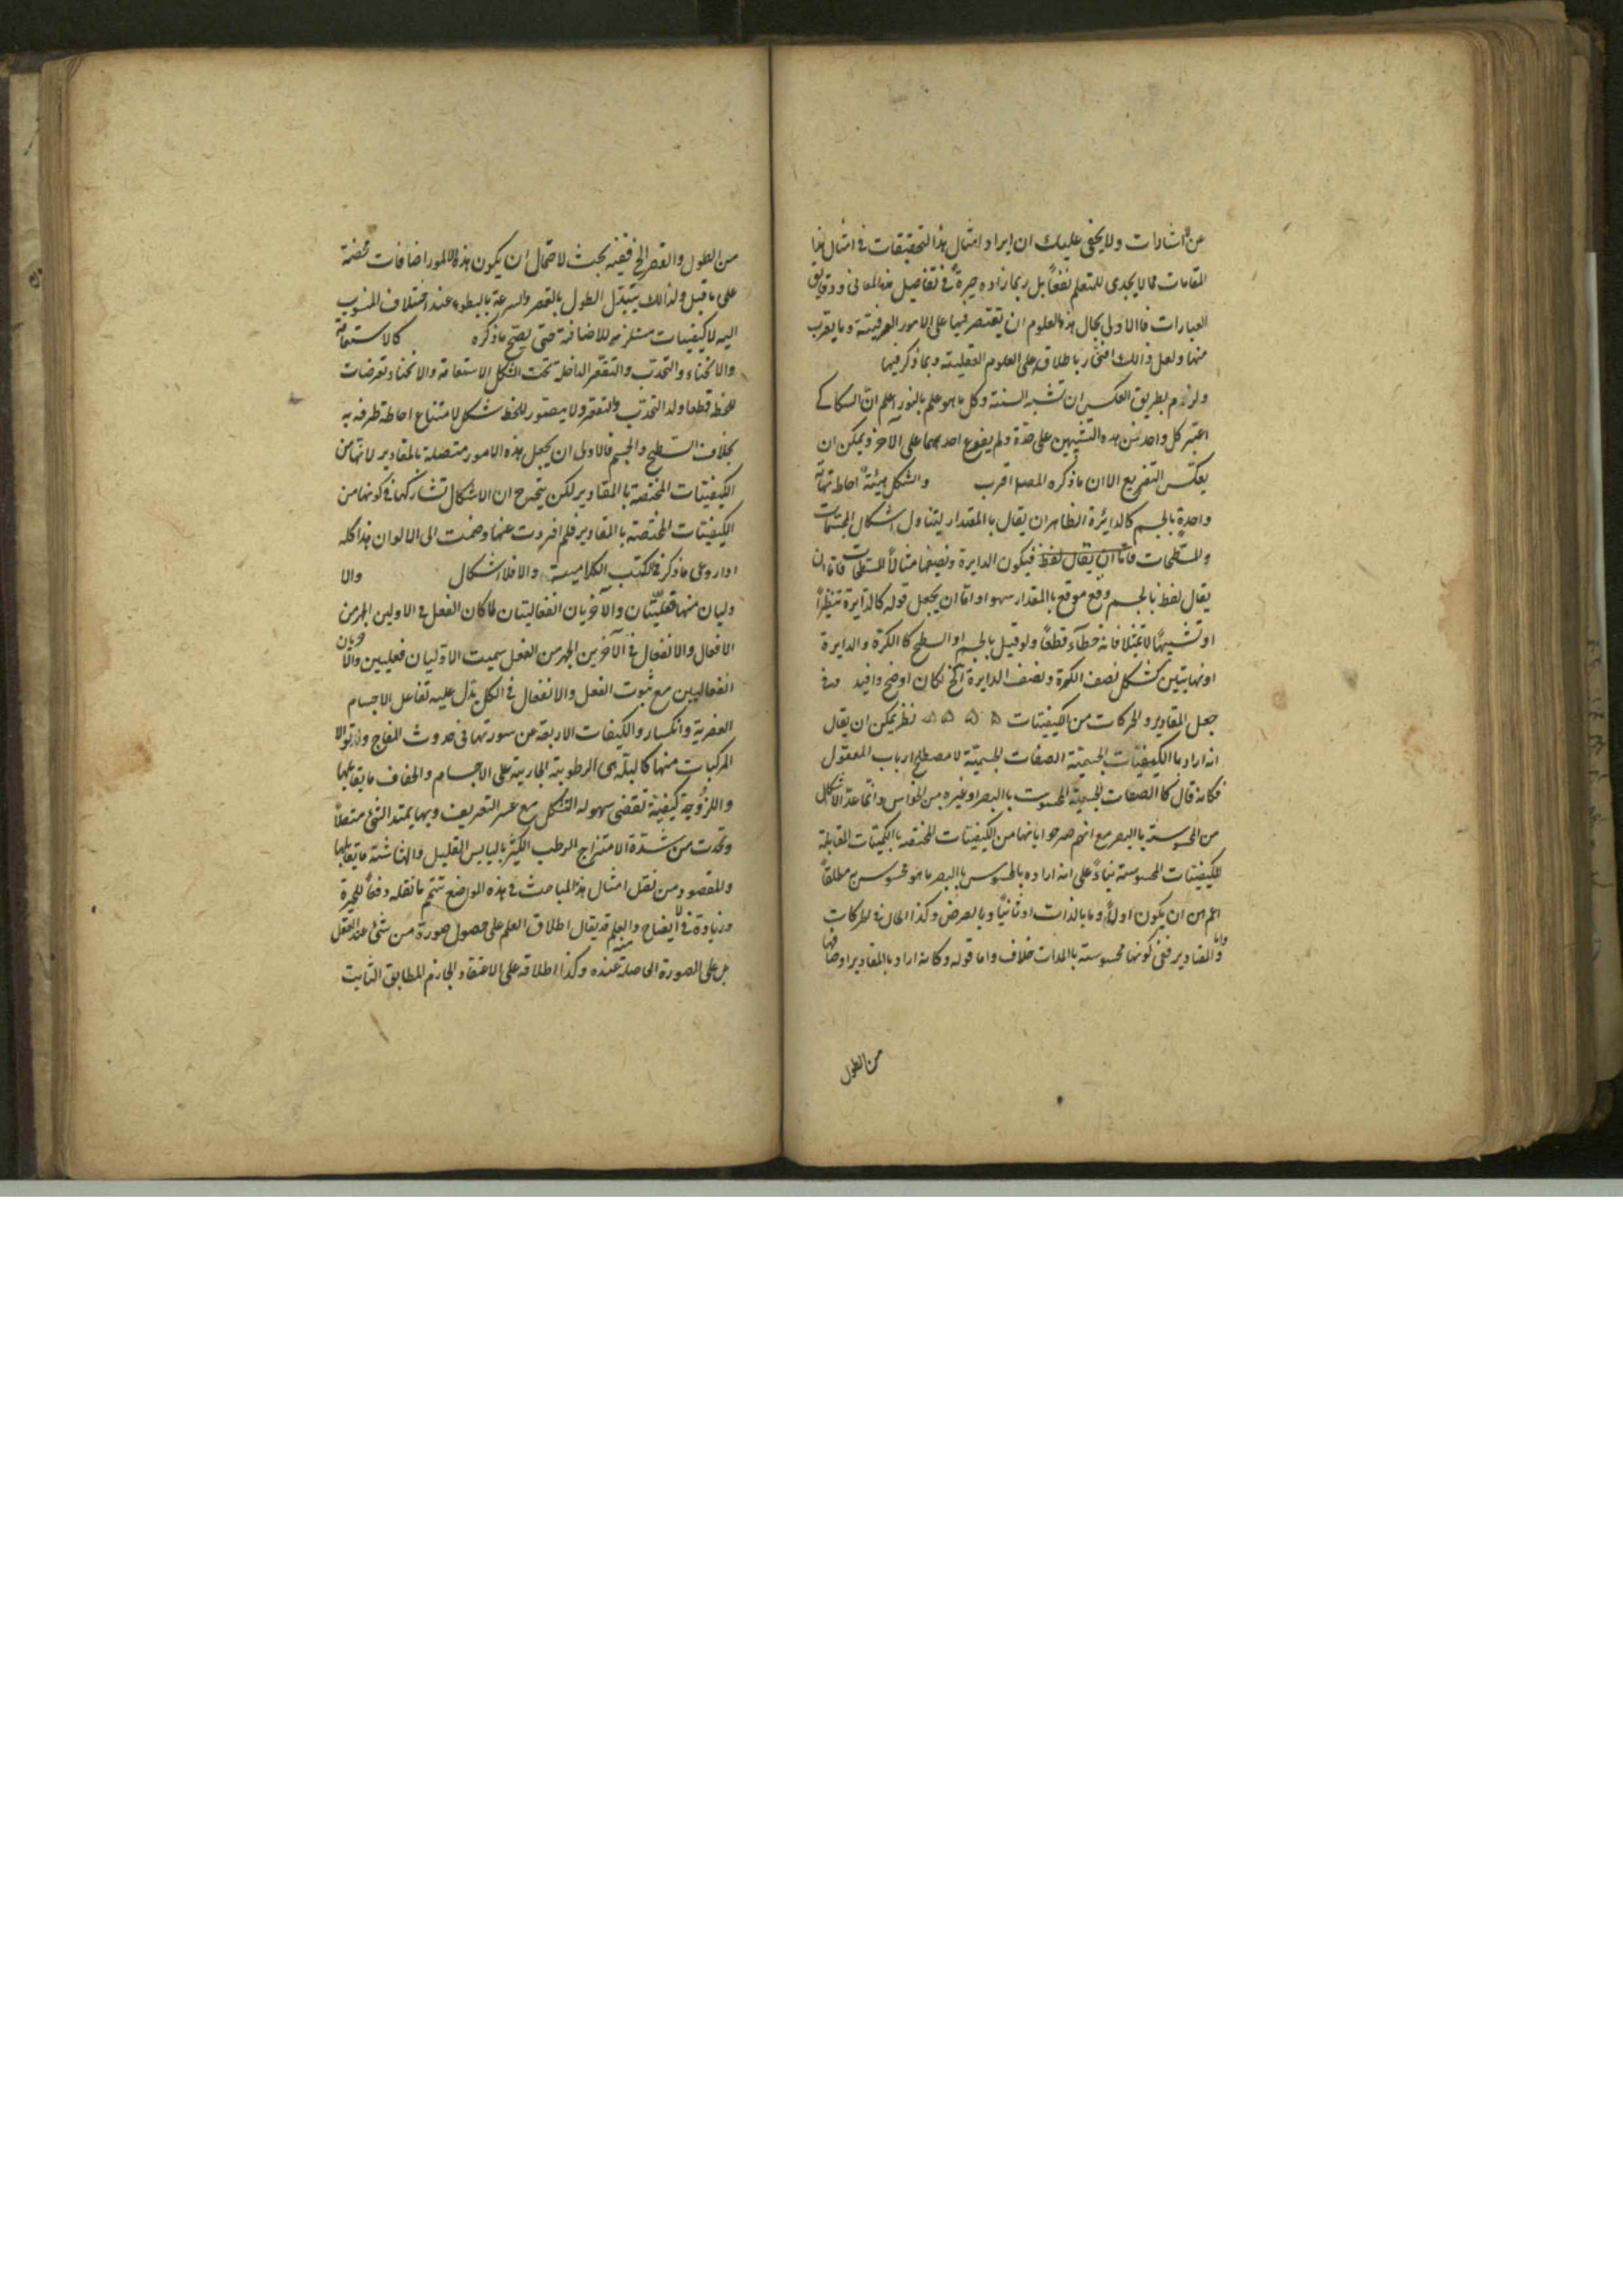 من الاشارات ولا يخفى عليك ان ايراد امثال هذا التحقيقات في امثال هذا
المقامات مما لا يجدى للمتعلم نفعاً بل ربما زاده حيرة في تفاصيل هذه المعانى ودقايق
العبارات فالاولى بحال هذه العلوم ان يقتصر فيها على الامور العرفيته وما يقرب
منها ولعل ذالك افتخار باطلاقه على العلوم العقليته وبما ذكر فيها
ولزم بطريق العكس ان تشبه السنته وكل ما هو علم بالنور اعلم ان السكاكے
اعتبر كل واحد من هذه التشبيهين على حدة ولم يفرع احدهما على الآخر ويمكن ان
يعكس التفريع الا ان ما ذكره المصه اقرب والشكل هيئة احاطة نهاية
واحدة بالجسم كالدائرة الظاهر ان يقال باالمقدار ليتناول اشكال المجسمات
والمسطحات فاما ان يقال لفظ فيكون الدايرة ونصفها مثالاً للمسطحات فاما ان
يقال لفظ بالجسم وقع موقع باالمقدار سهوا او اما ان يجعل قوله كالدايرة تنظيراً
او تشبيهاً لا تمثيلا فانه خطأء قطعاً ولو قيل بالجسم او السطح كا الكرة والدايرة
او نهايتين كشكل نصف الكرة ونصف الدايرة الخ لكان اوضح وافيد وفى
جعل المقادير والحركات من الكيفيتات ۵ ۵ ۵ ۵ نظر يمكن ان يقال
انه اراد باالكيفيات الجسميتة الصفات الجسميتة لا مصطلح ارباب المعقول
فكانه قال كا الصفات الجسمية المحسوسة باالبصر او غيره من الحواس وانما عد الاشكال
من المحسوسة باالبصر مع انهم صرحوا بانها من الكيفيتات المختصه باالكميات المقابلة
للكيفيتات المحسوسته بناءً على انه اراده بالمحسوس باالبصر ما هو محسوس به مطلقاً
اعم من ان يكون اولاً وما بالذات او ثانياً وبالعرض وكذا الحال في الحركات
واما والمقادير ففى كونها محسوسته باالذات خلاف واما قوله وكانه اراد باالمقادير اوصافها
من الطول
من الطول والقصر الخ ففيه بحث لاحتمال ان يكون هذه الامور اضافات محضة
على ما قيل ولذالك يتبدل الطول بالقصر والسرعة بالبطوء عند اختلاف المنسوب
اليه لا كيفيات مستلزمة للاضافة حتى يصح ما ذكره كالاستقامة
والانحناء والتحدب والتقعر الداخلة تحت الشكل الاستقامة والانحناء تعرضات
للخط قطعا ولد التحدب والتقعر ولا يتصور للخط شكل لامتناع احاطة طرفه به
بخلاف السطح والجسم فالاولى ان يجعل هذه الامور متصلة بالمقادير لانها من
الكيفيتات المختصة باالمقادير لكن يتجه ح ان الاشكال تشاركها في كونها من
الكيفيتات المختصة باالمقادير فلم افردت عنها وضمت الى الالوان هذا كله
اذا روعى ما ذكر في الكتب الكلاميسة والا فلا اشكال والا
وليان منها فعليتان والآخريان انفعاليتان لما كان الفعل في الاولين اظهر من
الافعال والانفعال في الآخرين اظهر من الفعل سميت الاوليان فعليين والآخريان
انفعاليين مع ثبوت الفعل والانفعال في الكل يدل عليه تفاعل الاجسام
العنصرية وانكسار والكيفات الاربعة من سورتها في حدوث المزاج وتوالا
المركبات منها كالبلّة هى الرطوبة الجارية على الاجسام والجفاف ما يقابلها
واللزوجة كيفيّة تقتضى سهوله التشكل مع عسر التفريق وبها يمتد الشئ متصلاً
وتحدث من شدة الامتزاج الرطب الكثير باليابس القليل والهشاشة ما يقابلها
والمقصود من نقل امثال هذا المباحث في هذه المواضع تتميم ما نقله دفعاً للحيرة
وزيادة في الايضاح والعلم قد يقال اطلاق العلم على حصول صورة من شئ عند العقل
بل على الصورة الحاصلة منه عنده وكذا اطلاقه على الاعتقاد الجازم المطابق الثابت